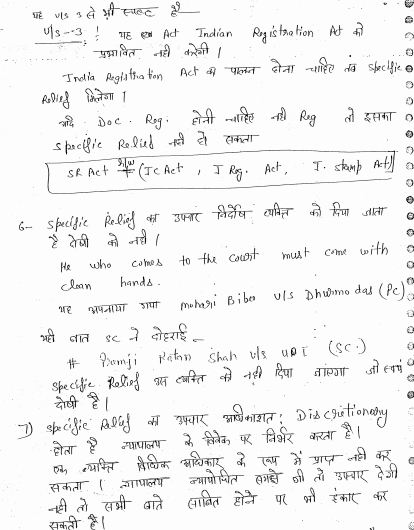 यह u/s 3 से भी स्पष्ट है —
u/s -3 ! यह Act Indian Registration Act को
प्रभावित नहीं करेगी ।
India Registration Act का पालन होना चाहिए तब Specific
Relief मिलेगा ।
यदि Doc. Reg. होनी चाहिए नहीं Reg तो इसका
Specific Relief नहीं हो सकता
SR Act (IC Act, I Reg. Act, I. Stamp Act)
6- Specific Relief का उपचार निर्दोष व्यक्ति को दिया जाता
है दोषी को नहीं ।
He who comes to the court must come with
clean hands.
यह अपनाया गया Mohari Biber V/s Dhurmo das (PC)
यही बात SC ने दोहराई —
# Ramji Ratan Shah V/s UOI (SC.)
Specific Relief उस व्यक्ति को नहीं दिया जाएगा जो स्वयं
दोषी है ।
7) Specific Relief का उपचार अधिकांशतः Discretionary
होता है न्यायालय के विवेक पर निर्भर करता है ।
एक व्यक्ति विधिक अधिकार के रूप में प्राप्त नहीं कर
सकता । न्यायालय न्यायोचित समझे भी तो उपचार देगी
नहीं तो सभी बाते साबित होने पर भी इंकार कर
सकती है ।